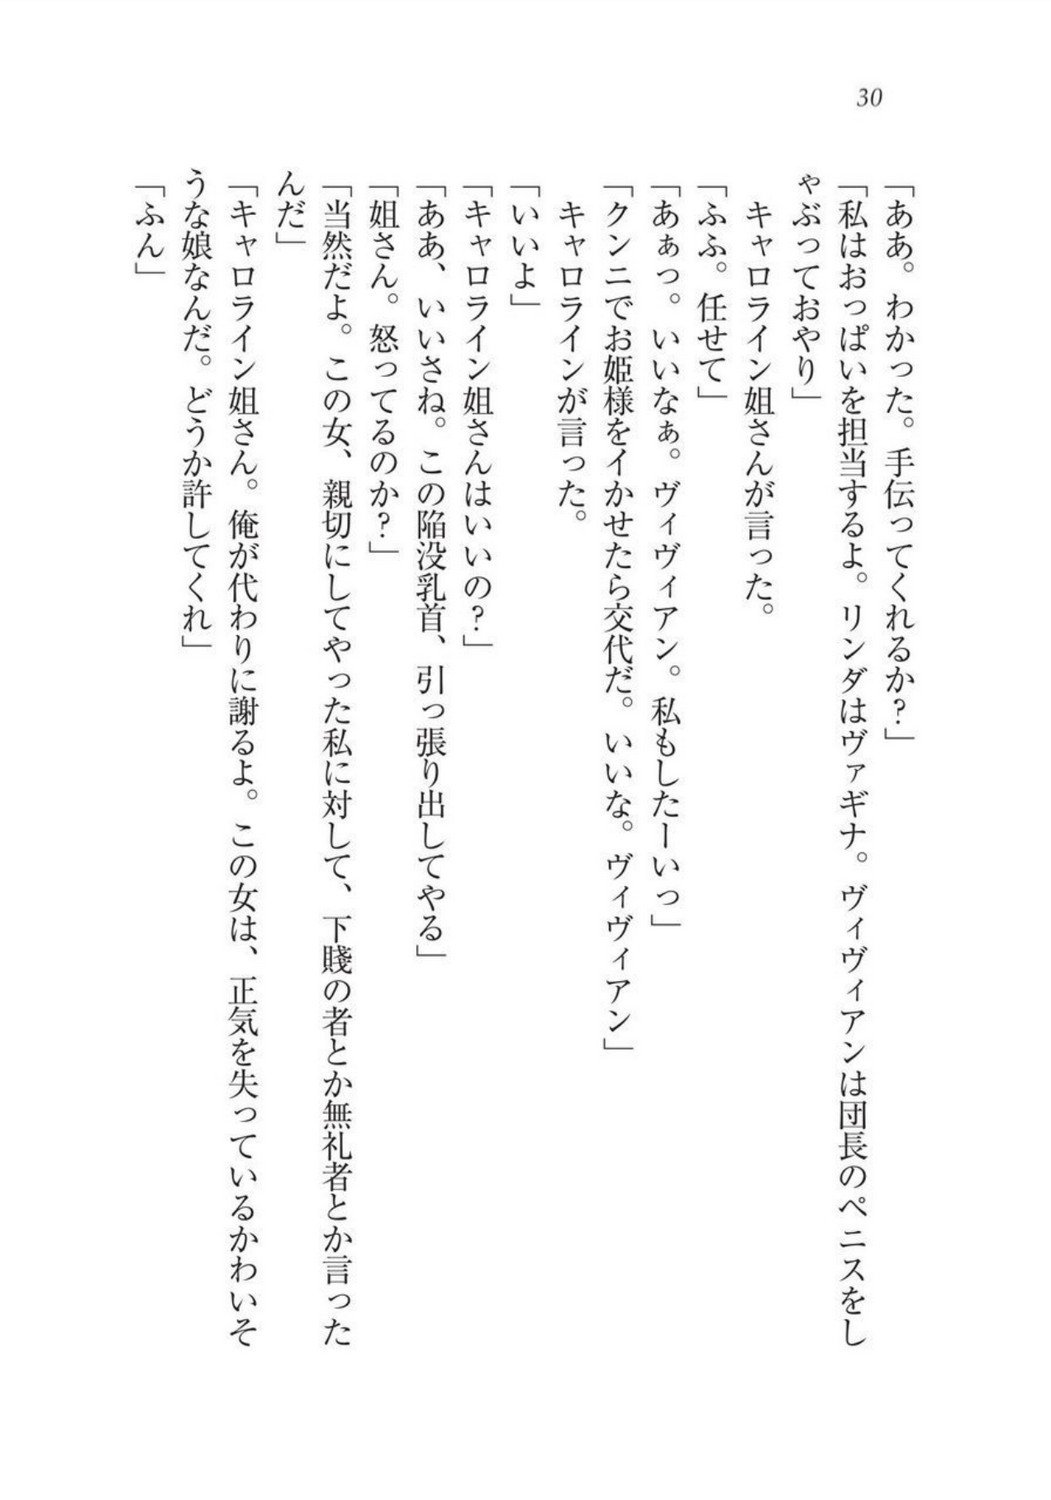 30
「ああ。わかった。手伝ってくれるか？」
「私はおっぱいを担当するよ。リンダはヴァギナ。ヴィヴィアンは団長のペニスをし
ゃぶっておやり」
　キャロライン姐さんが言った。
「ふふ。任せて」
「あぁっ。いいなぁ。ヴィヴィアン。私もしたーいっ」
「クンニでお姫様をイかせたら交代だ。いいな。ヴィヴィアン」
　キャロラインが言った。
「いいよ」
「キャロライン姐さんはいいの？」
「ああ、いいさね。この陥没乳首、引っ張り出してやる」
「姐さん。怒ってるのか？」
「当然だよ。この女、親切にしてやった私に対して、下賤の者とか無礼者とか言った
んだ」
「キャロライン姐さん。俺が代わりに謝るよ。この女は、正気を失っているかわいそ
うな娘なんだ。どうか許してくれ」
「ふん」